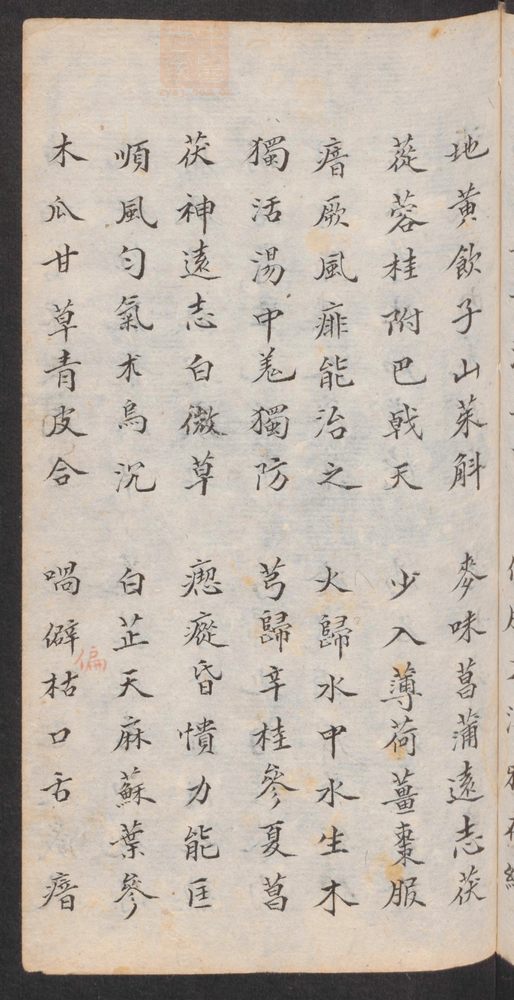 地黃飲子山茱斛 麥味菖蒲遠志茯
蓯蓉桂附巴戟天 少入薄荷薑棗服
瘖厥風痱能治之 火歸水中水生木
獨活湯中羗獨防 芎歸辛桂參夏菖
茯神遠志白微草 瘛瘲昏憒力能匡
順風勻氣朮烏沉 白芷天麻蘇葉參
木瓜甘草青皮合 喎僻枯口舌瘖
偏